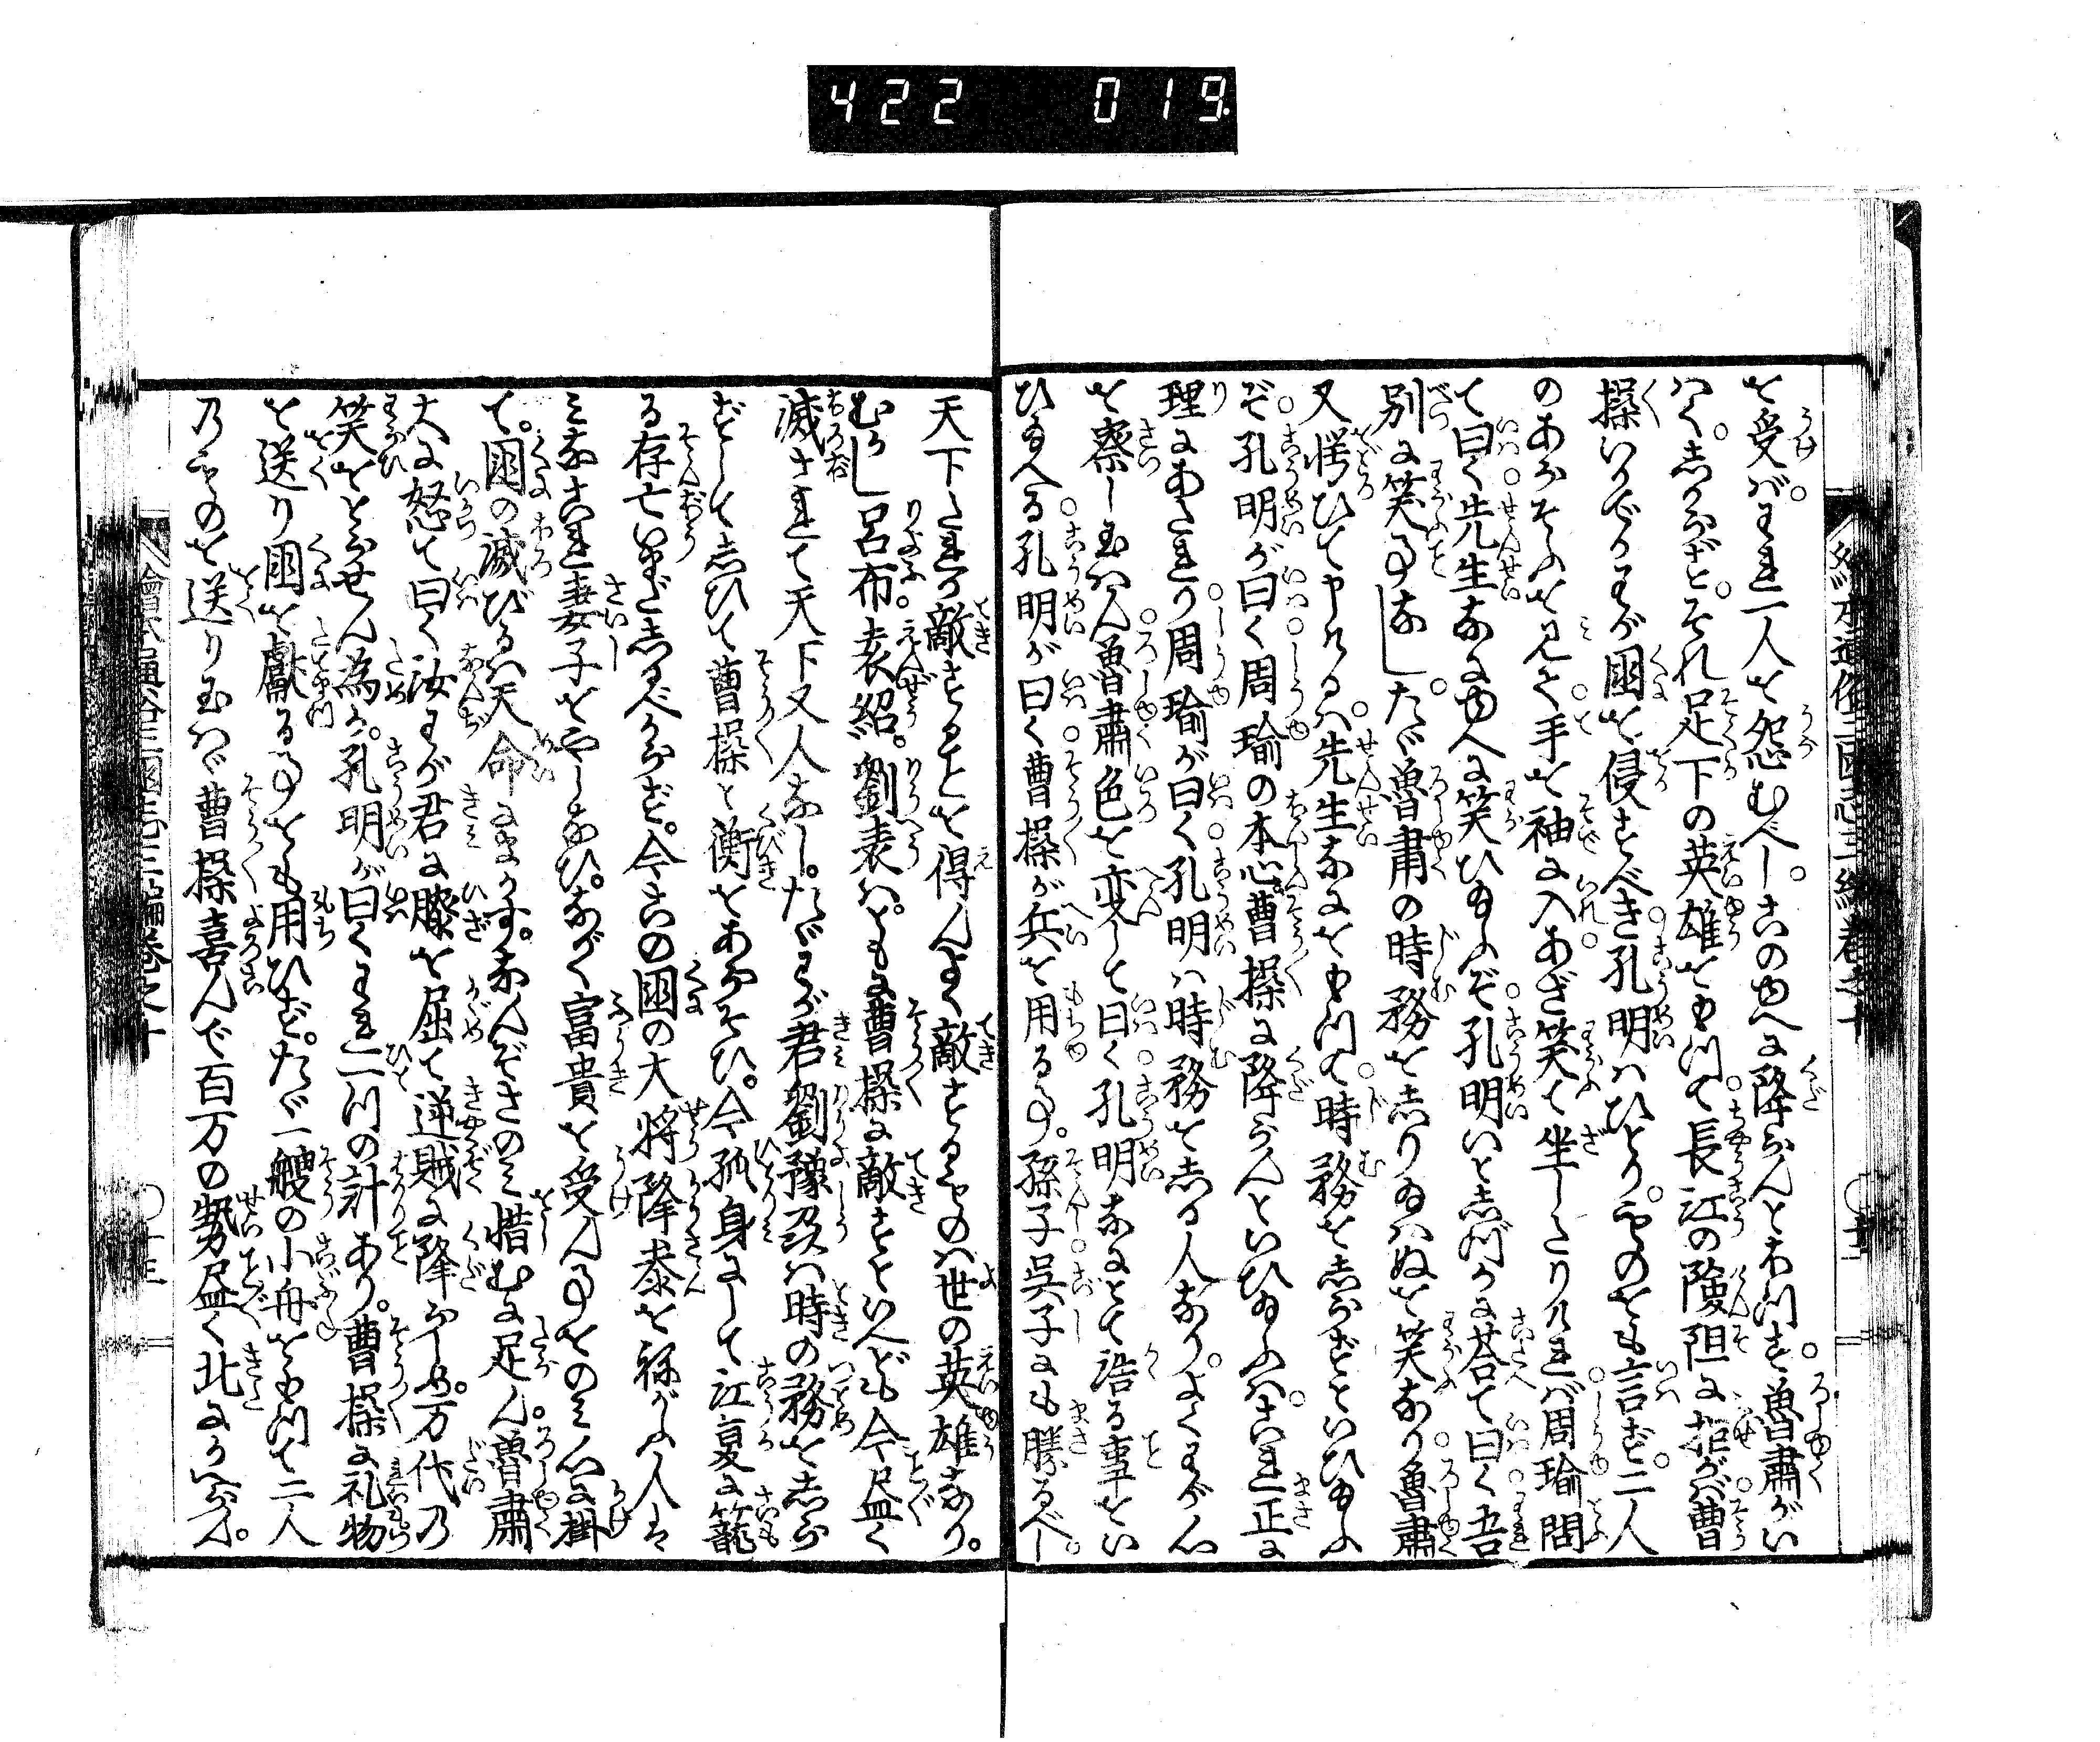 422 019
を受ば。われ一人を怨むべし。このゆへに降らんとおもつす。魯肅がい
はく。しからず。それ足下の英雄をもつて。長江の険阻に拒がば。曹
操いかでかわが国を侵すべき。孔明はひとり。ものをも言ず。二人
のあらそふを見て。手を袖に入。あざ笑て坐したりければ。周瑜問
て曰く。先生なにゆへに笑ひ給ふぞ。孔明いとしづかに荅て曰く。吾
別に笑ふ事なし。たゞ魯肅の時務をしりゐはぬを笑なり。魯肅
又愕ひて申けるは。先生なにをもつて。時務をしらずといひ給ふ
ぞ。孔明が曰く。周瑜の本心。曹操に降らんといひ給ふは。これ正に
理にあたれり。周瑜が曰く。孔明は時務をしる人なり。よくわが心
を察し玉はん。魯肅色を変じて曰く。孔明なにとて詣る事をい
ひ給へる。孔明が曰く。曹操が兵を用る事。孫子呉子にも勝るべし。
天下たれか敵することを得んや。よく敵するものは世の英雄なり。
むかし呂布。袁紹。劉表は。ともに曹操に敵すといへども。今尽く
滅されて天下又人なし。たゞわが君劉豫州は時の務をしら
ずして。しひて曹操と衡をあらそひ。今孤身にして江夏に篭
る。存亡いまだしるべからず。今この国の大将降参を祢がふ人は
みなこれ妻子をやしなひ。ながく富貴を受ん事をのみ心に掛
て。国の滅びるは天命にまかす。なんぞさのみ惜むに足ん。魯肅
大に怒て曰く。汝わが君に膝を屈て逆賊に降らしめ。万代の
笑をとらせん為か。孔明が曰く。われ一つの計あり。曹操に礼物
を送り。国を獻る事をも用ひず。たゞ一艘の小舟をもつて。二人
のものを送り玉はゞ。曹操喜んで百万の勢尽く北にかへらん。